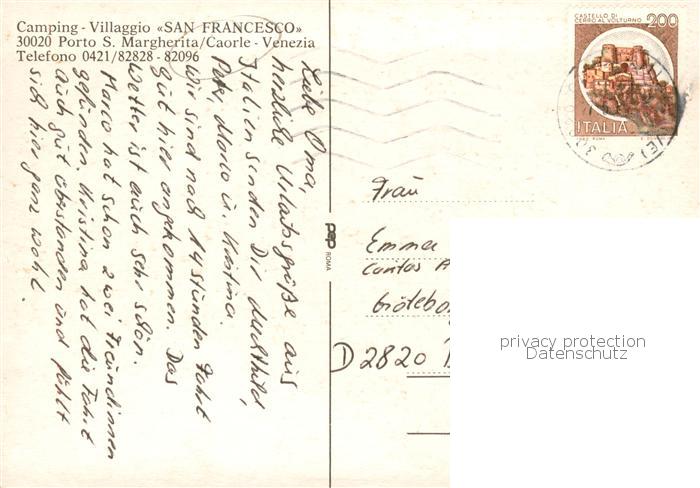 Camping - Villaggio «SAN FRANCESCO»
30020 Porto S. Margherita/Caorle - Venezia
Telefono 0421/82828 - 82096
Liebe Oma,
herzliche Urlaubsgrüße aus
Italien senden Dir Mechthild,
Peter, Marco u. Kristina.
Wir sind nach 14 Stunden Fahrt
gut hier angekommen. Das
Wetter ist auch sehr schön.
Marco hat schon zwei Freundinnen
gefunden. Kristina hat die Fahrt
auch gut überstanden und fühlt
sich hier ganz wohl.
pep
ROMA
CASTELLO DI
CERRO AL VOLTURNO
200
ITALIA
Frau
Emma
Göteborg
D 2820
privacy protection
Datenschutz